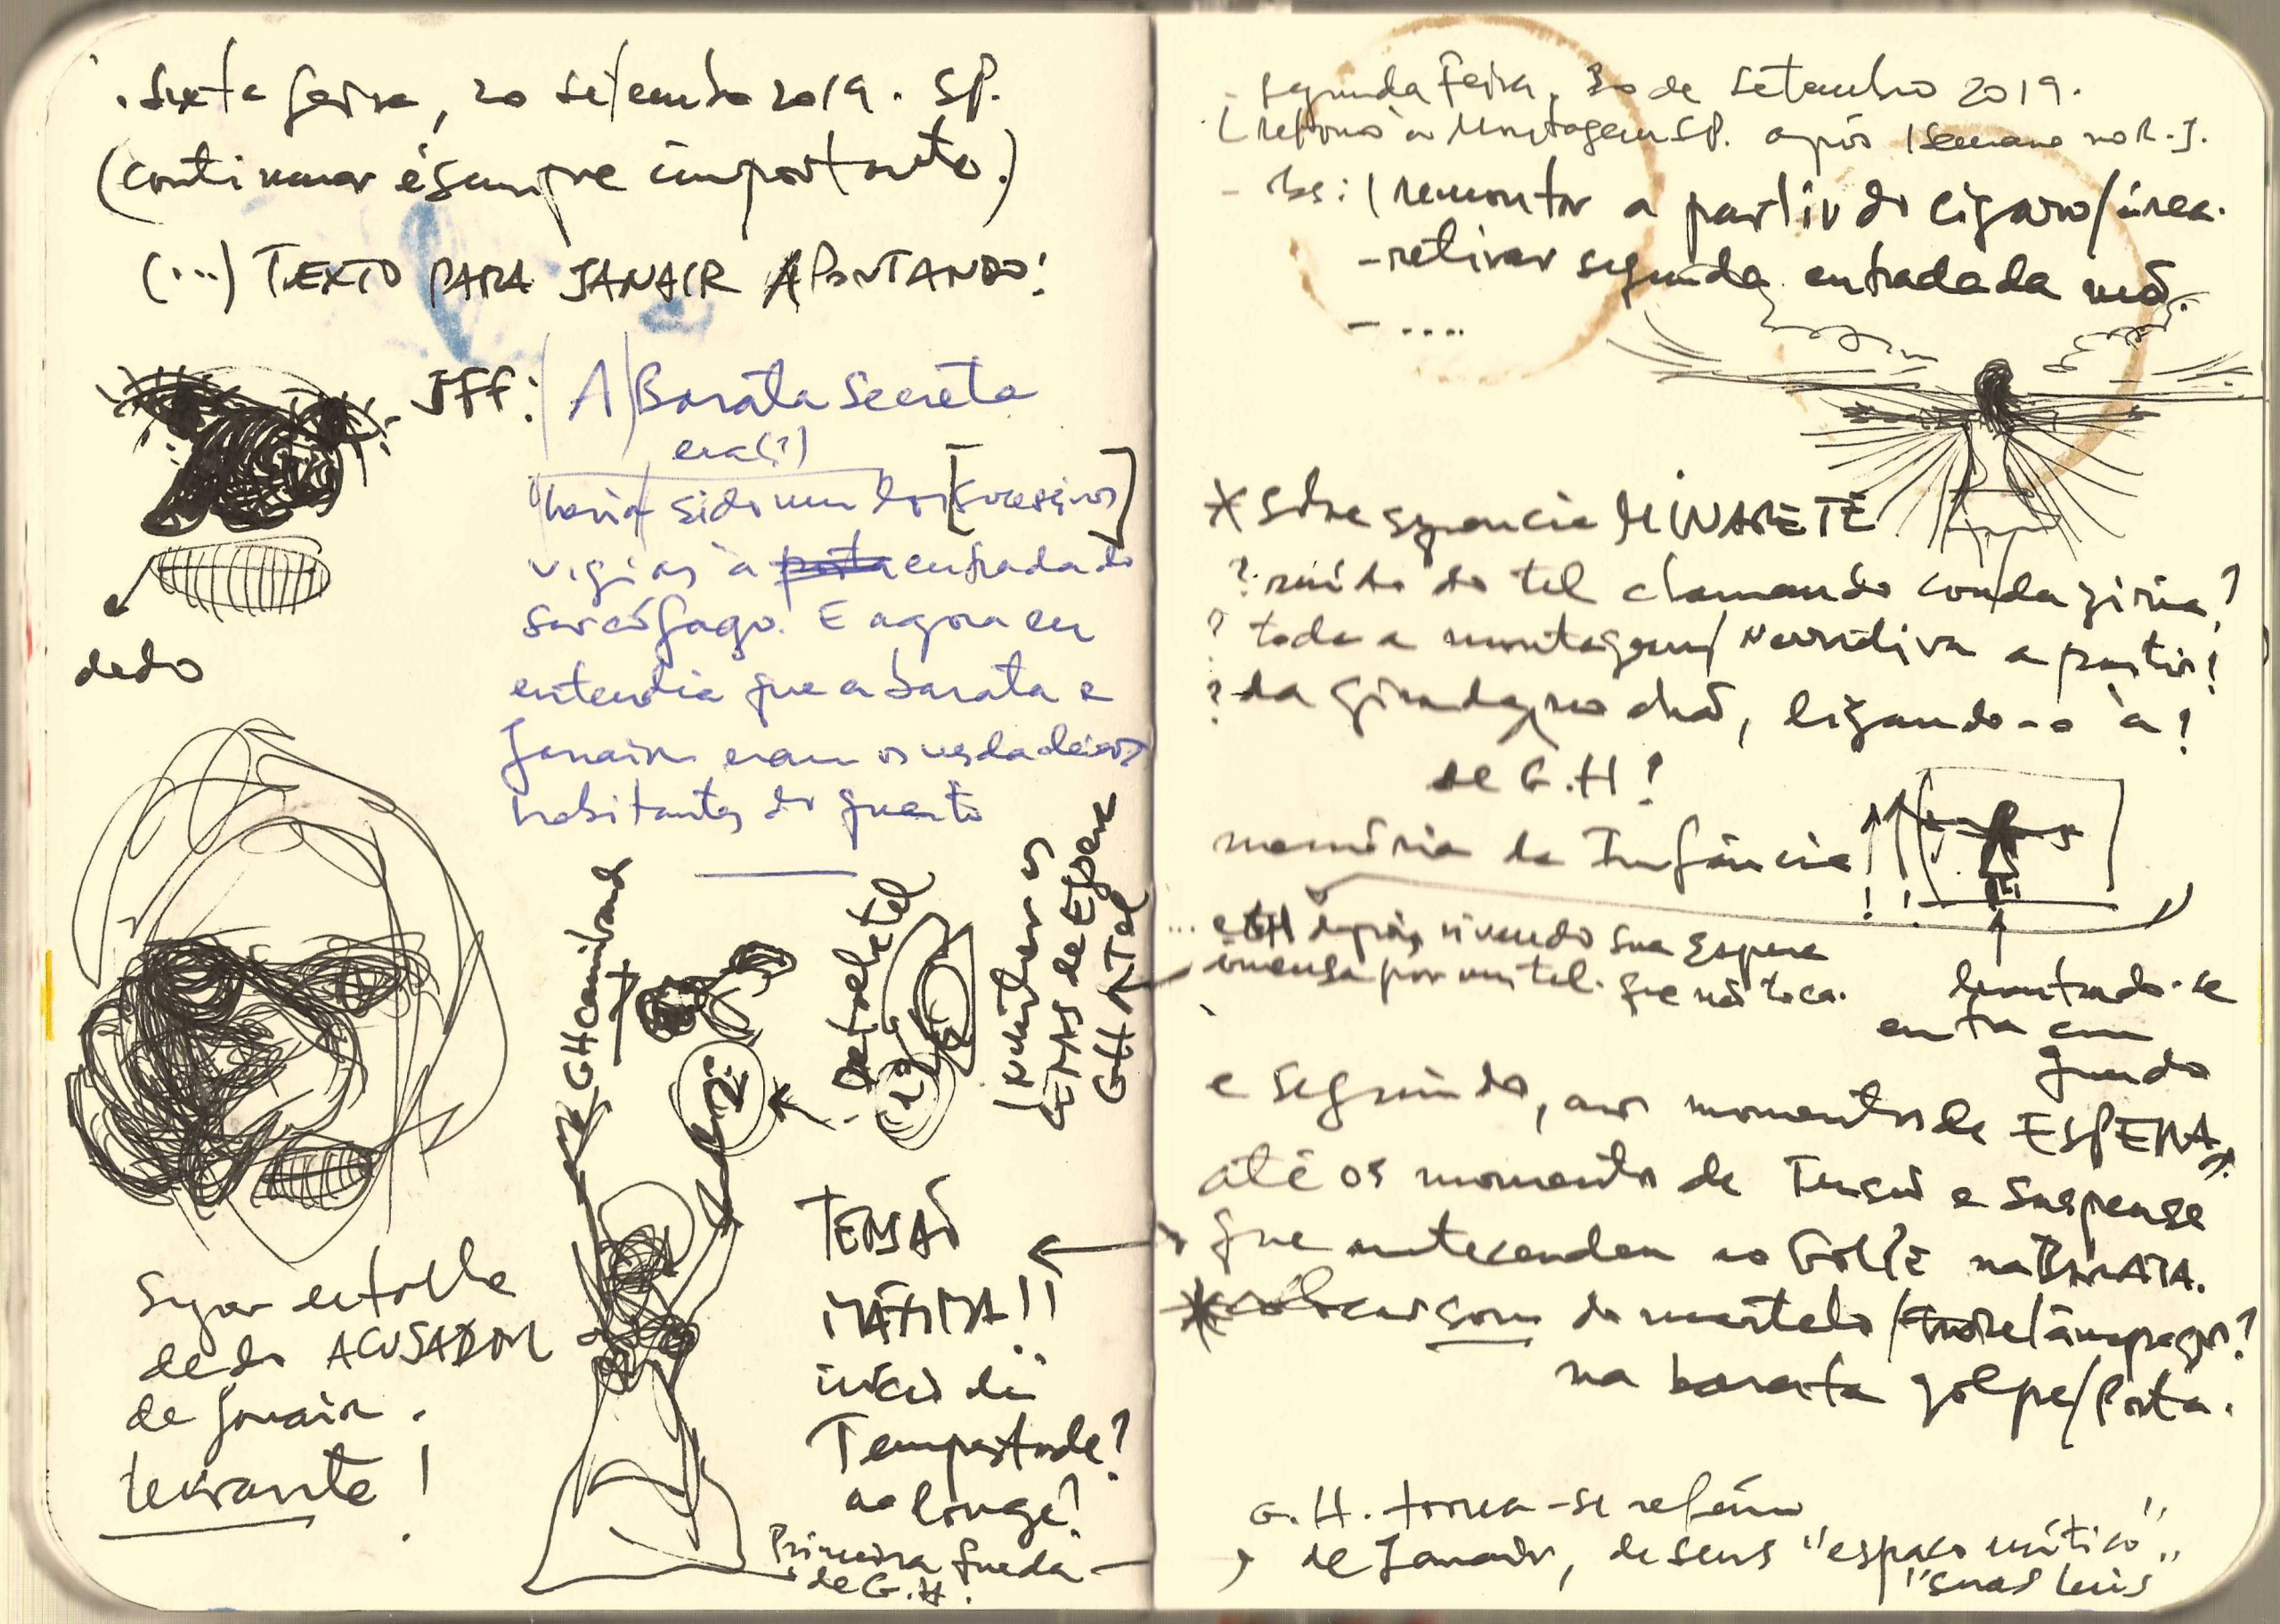 . Sexta feira, 20 setembro 2019. SP.
(continuar é sempre importante.)
(...) TEXTO PARA JANAIR APONTANDO:
JFF: A Barata Secreta
era(?)
havia sido um dos [sucessivos]
vigias à porta entrada do
sarcófago. E agora eu
entendia que a barata e
Janair eram os verdadeiros
habitantes do quarto
dedo
GH caminhando
Defrel tel
2º
1º
Incluir os
TEMAS de Espera
GH Tel
Sugar detalhe
dedo ACUSADOR
de Janair.
levante!
TENSÃO
MÁXIMA!!
início de
Tempestade?
ao longe?
Primeira queda
de G.H.
- Segunda Feira, 30 de Setembro 2019.
(retorno à Montagem SP. após 1 semana no R.J.
- Obs: (remontar a partir do cigarro/área.
- retirar segunda entrada da mão.
- ....
* Sobre sequência MINARETE
? ruído do tel chamando conda giria?
? toda a montagem/narrativa a partir!
? da girada no chão, ligando-o à!
de G.H!
memória da Infância!
!!
... e GH depois, vivendo sua espera
imensa por um tel. que não toca.
levantando-se
entra em
quedo
e seguindo, aos momentos de ESPERA,
até os momentos de Tensão e Suspense
que antecendem ao GOLPE na BARATA.
* colocar som do martelo / /
na barata golpe/Porta.
G.H. torna-se refém
de Janair, de seus "espaço mítico"
"suas leis"